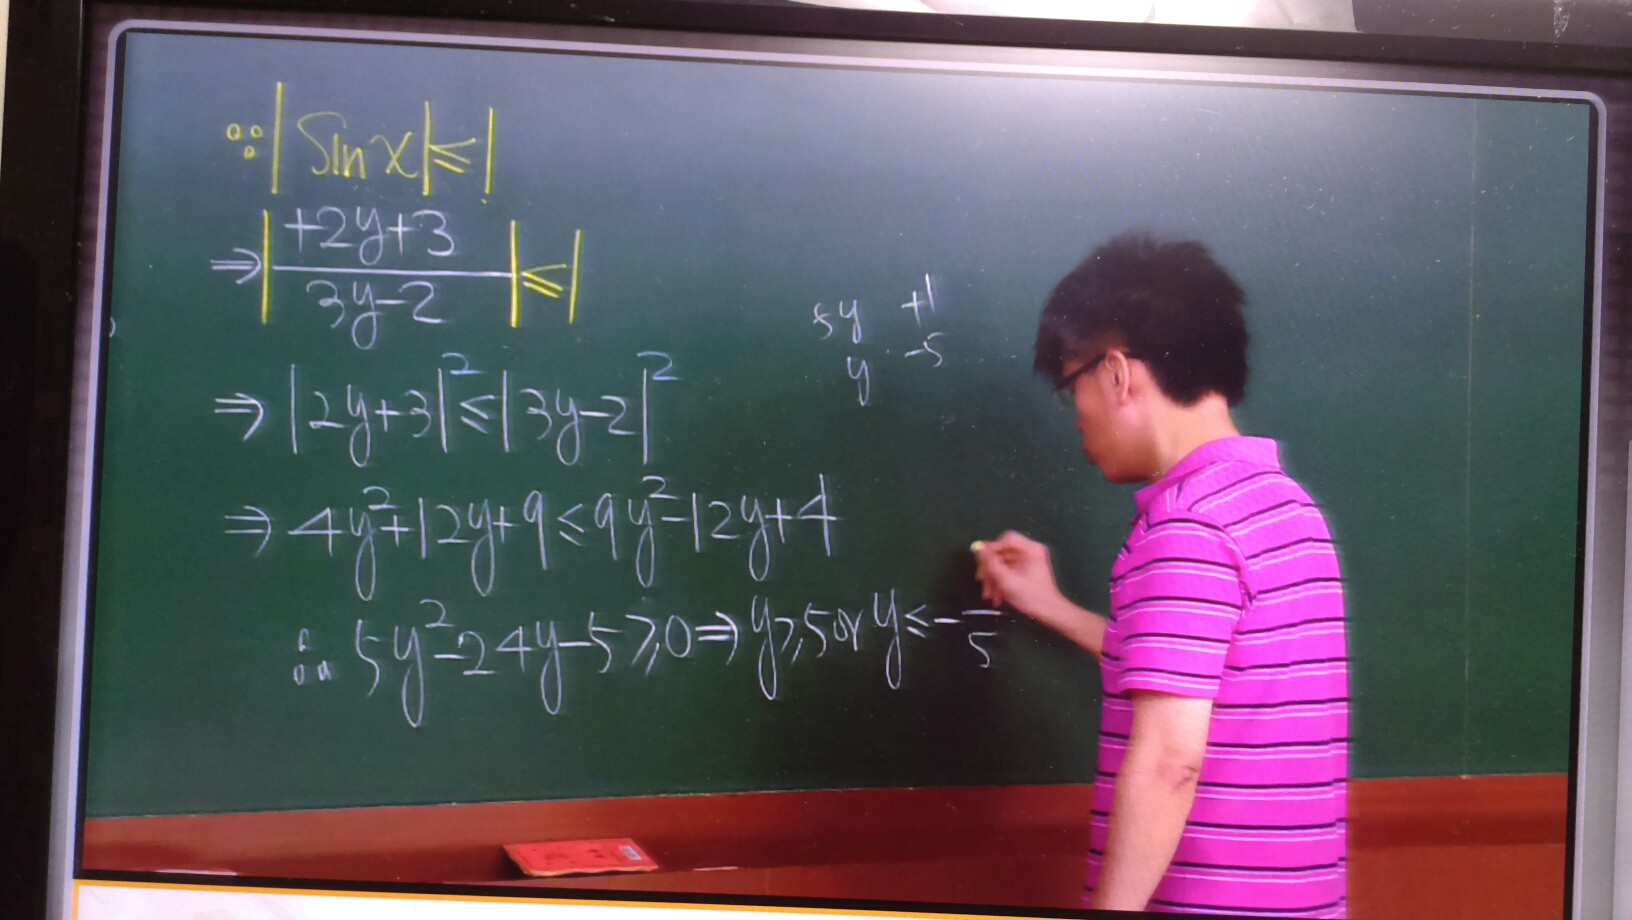 ∵|Sin x|≤1
⇒|(+2y+3)/(3y-2)|≤1
⇒|2y+3|²≤|3y-2|²
⇒4y²+12y+9≤9y²-12y+4
∴5y²-24y-5≥0⇒y≥5 or y≤-/5
5y +1
y -5